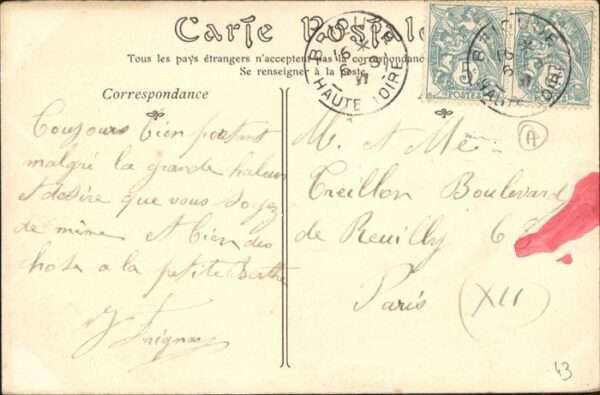 Carte Postale
Tous les pays étrangers n'acceptent pas la correspondance
Se renseigner à la poste
Correspondance
BRIOUDE
16
6
HAUTE LOIRE
BRIOUDE
16
HAUTE LOIRE
5
POSTES
A
Toujours bien portant
malgré la grande chaleur
et désire que vous soyez
de même et bien des
chose a la petite Berthe
M. et Me
Creillon Boulevard
de Reuilly 6
Paris (XII)
43